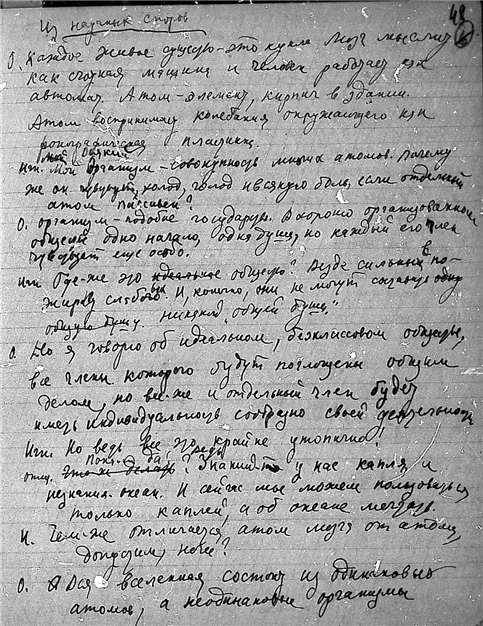 Из научных споров
48
О. Каждое живое существо – это кукла. Мозг мыслит
как счетная машина и человек работает как
автомат. Атом – элемент, кирпич в здании.
Атом воспринимает колебания окружающего как
фонографическая пластинка.
Ин. Мой организм – совокупность многих атомов. Почему
же он чувствует холод, голод и всякую боль, если отдельный
атом пассивен?
О. Организм – подобие государства. В хорошо организованном
обществе одно начало, одна душа, но каждый его член
чувствует еще особо.
Ин. Где-же это идеальное общество? Везде сильный по-
жирает слабого. И, конечно, они не могут составить одну
общую душу. Никакой "общей души".
О. Но я говорю об идеальном, бесклассовом обществе,
все члены которого будут поглощены общим
делом, но все-же и отдельный член будет
иметь индивидуальность сообразно своей деятельности
Ин. Но ведь все это крайне утопично!
Знаний-то у нас капля, а
незнания океан. И сейчас мы можем пользоваться
только каплей, а об океане мечтать.
И. Чем-же отличается атом мозга от атома,
допустим, ноги?
О. Вся вселенная состоит из одинаковых
атомов, а неодинаковые организмы